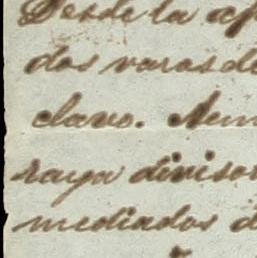 Desde la ap
dos varas de
clavo. Num
raya divisor
mediados d